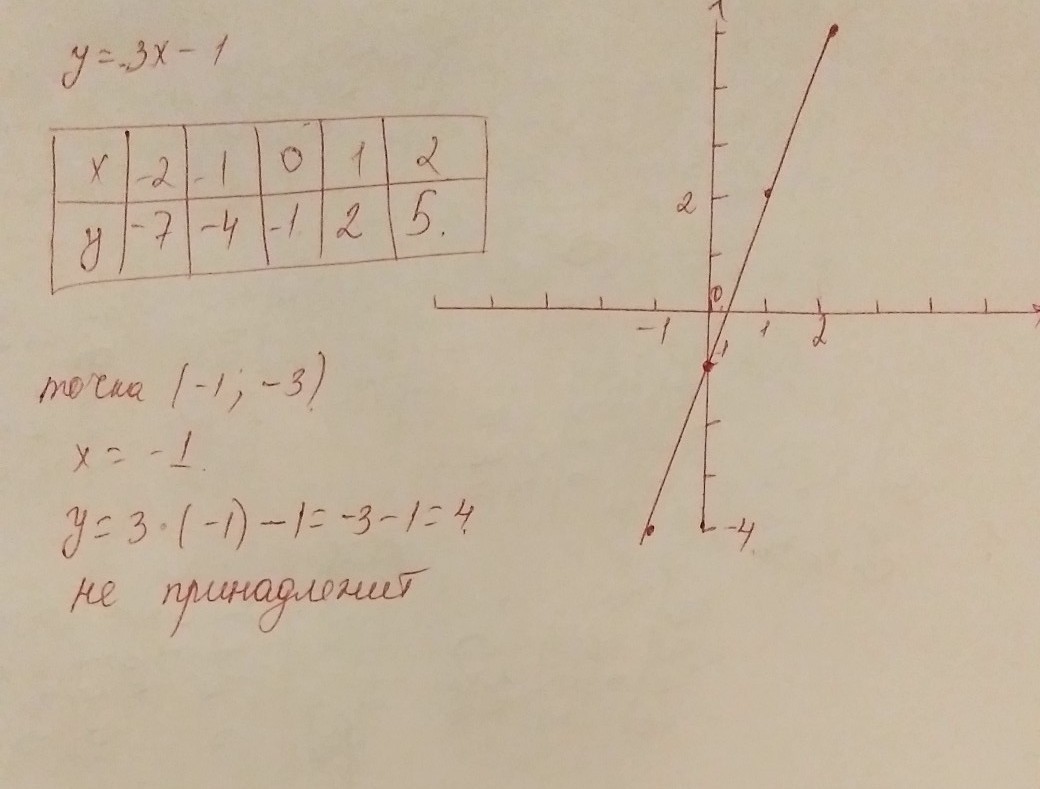 y = 3x - 1
x -2 -1 0 1 2
y -7 -4 -1 2 5.
точка (-1; -3)
x = -1.
y = 3·(-1) - 1 = -3 - 1 = 4.
не принадлежит
1
2
0
-1 1 2
-1
-4